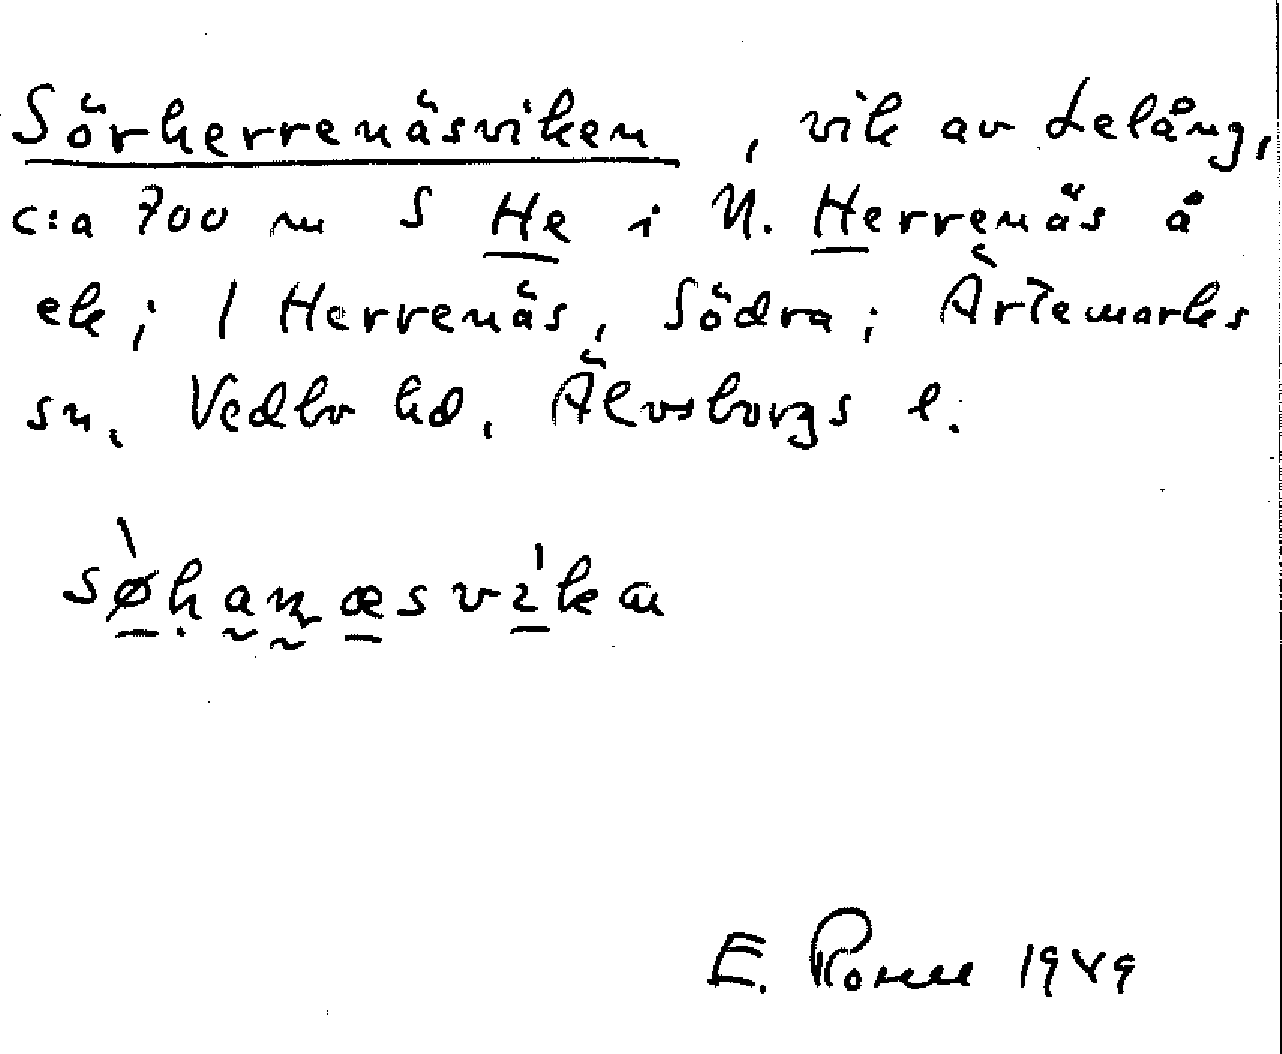 Sörherrenäsviken, vik av Lelång,
c:a 700 m S He i N. Herrenäs å
ek; 1 Herrenäs, Södra; Ärtemarks
sn. Vedbo hd, Älvsborgs l.
E. 1949